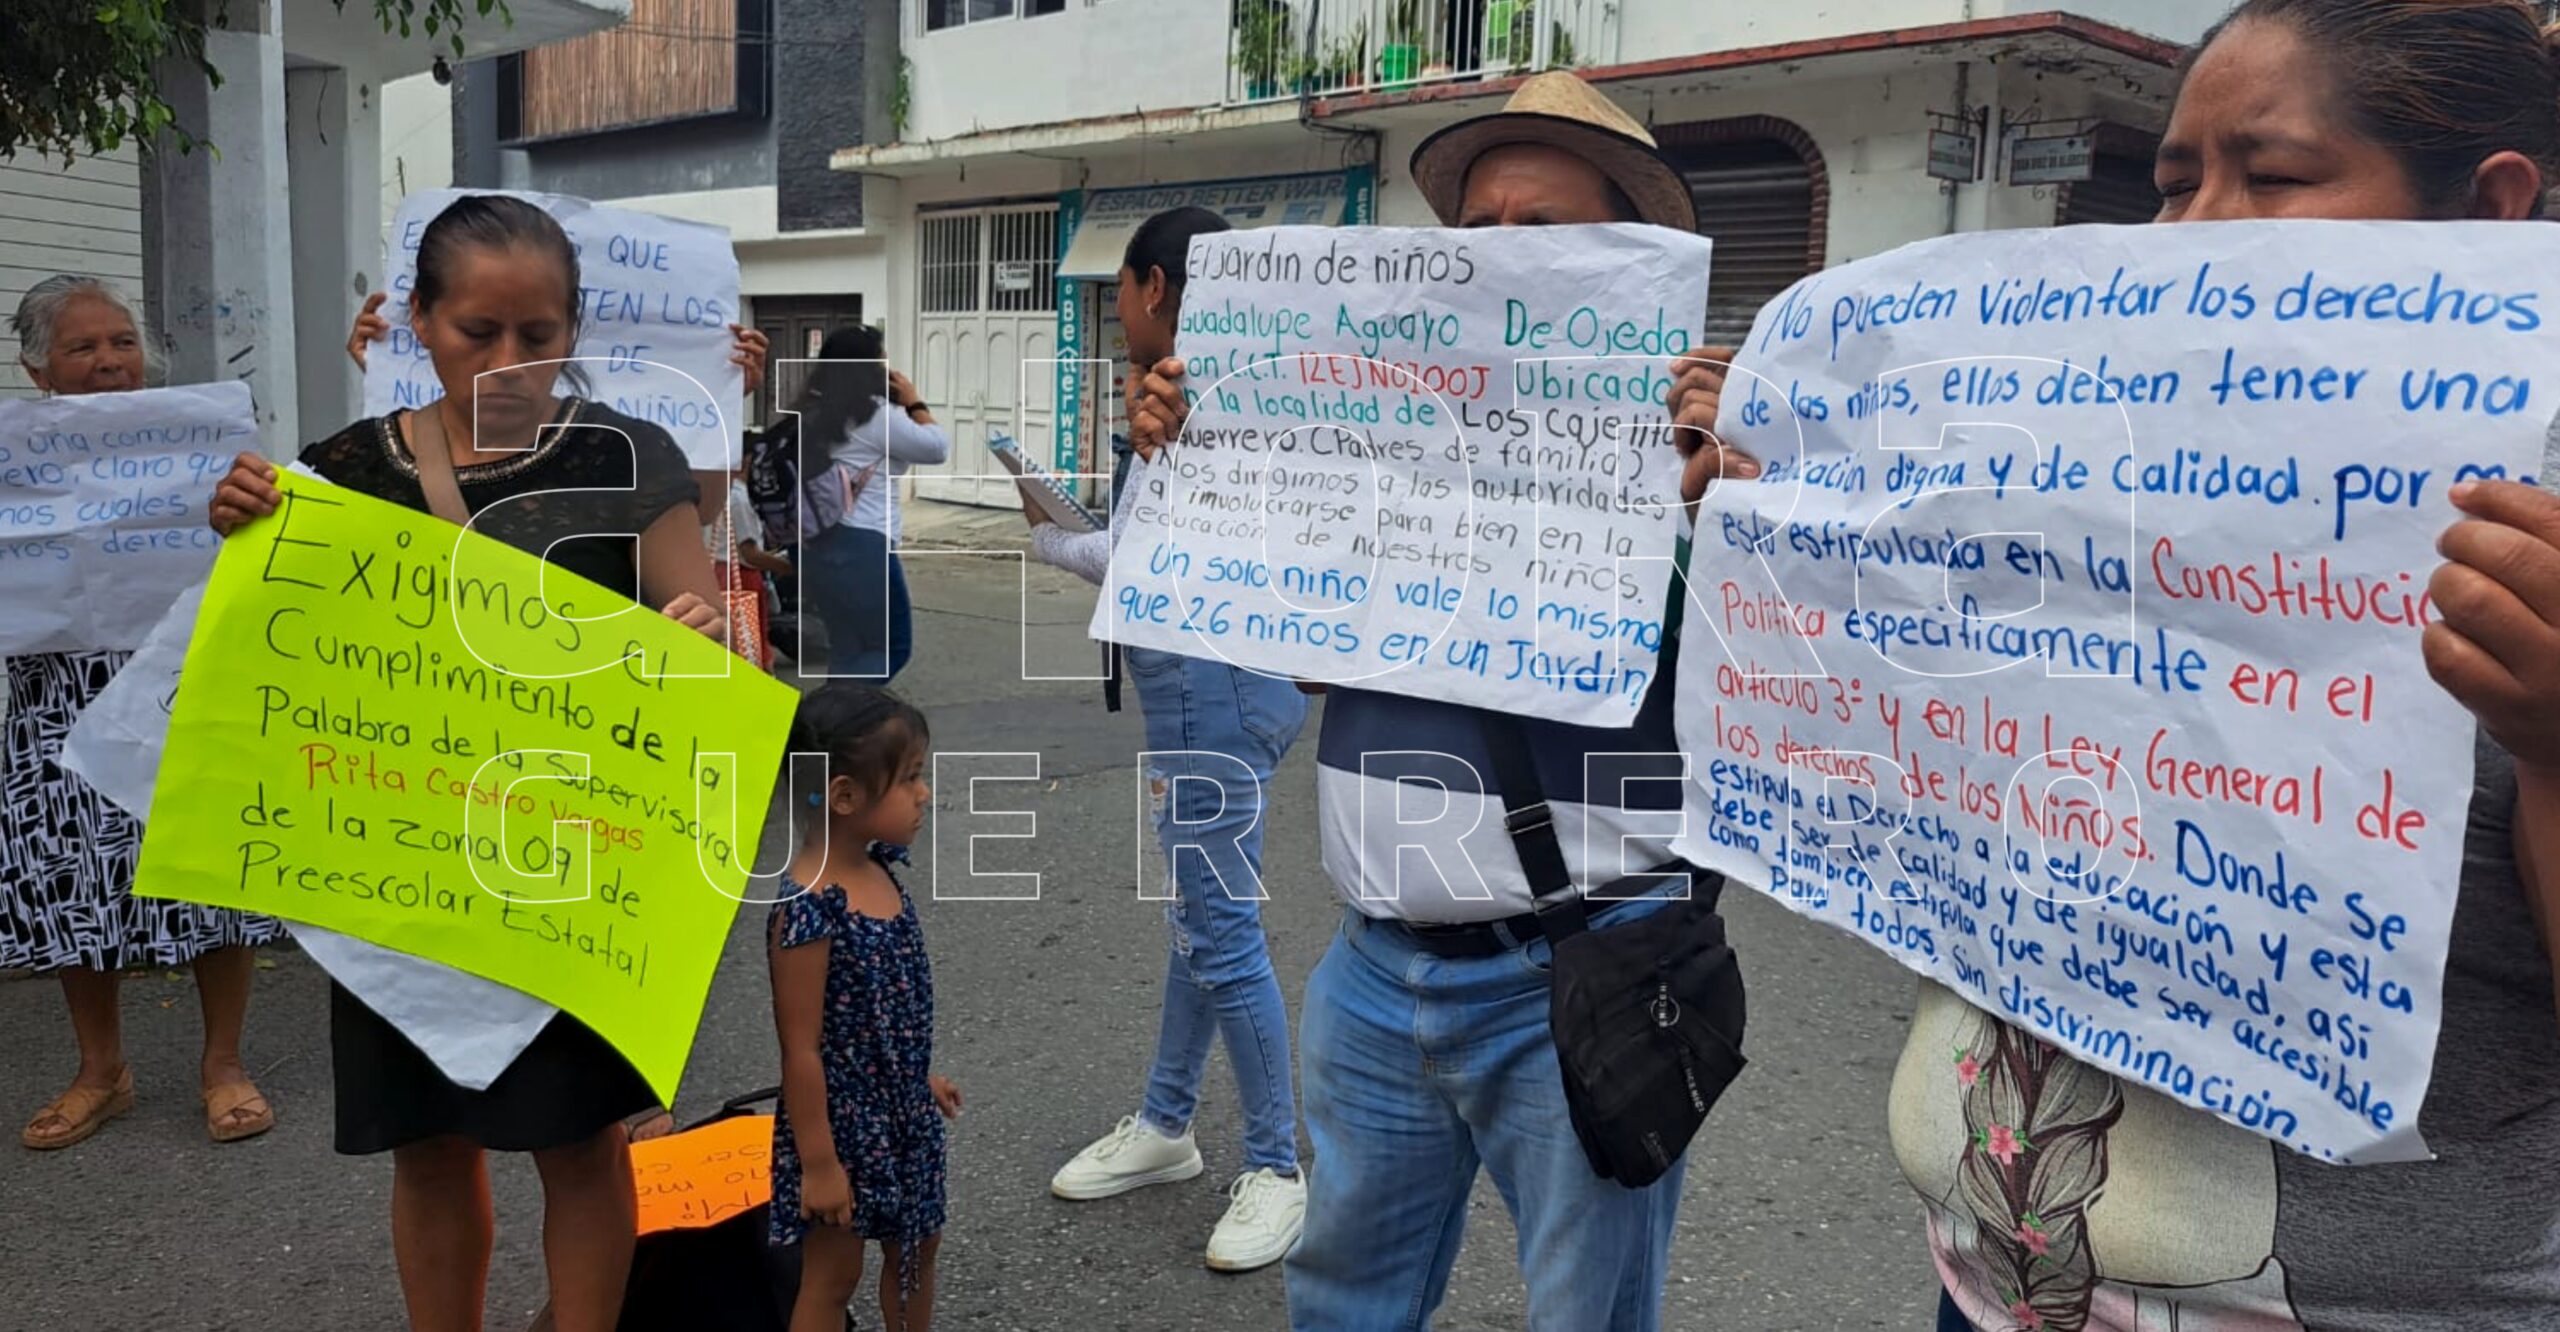 QUE
TEN LOS
DE
NIÑOS
una comuni-
ero, claro qu
mos cuales
tros derec
Exigimos el
Cumplimiento de la
Palabra de la supervisora
Rita Castro Vargas
de la zona 09 de
Preescolar Estatal
ESPACIO BETTER WAR
El jardin de niños
Guadalupe Aguayo De Ojeda
on C.C.T. 12EJN0100J Ubicado
n la localidad de Los Cajelito
Guerrero. (Padres de familia)
Nos dirigimos a las autoridades
a imvolucrarse para bien en la
educación de nuestros niños.
Un solo niño vale lo mismo
que 26 niños en un Jardín
No pueden Violentar los derechos
de los niños, ellos deben tener una
educación digna y de calidad. por
esto estipulada en la Constitució
Politica especificamente en el
artículo 3º y en la Ley General de
los derechos de los Niños. Donde se
estipula el Derecho a la educación y esta
debe ser de calidad y de igualdad, así
como también estipula que debe ser accesible
Para todos, sin discriminación...
aHORa
GUERRERO